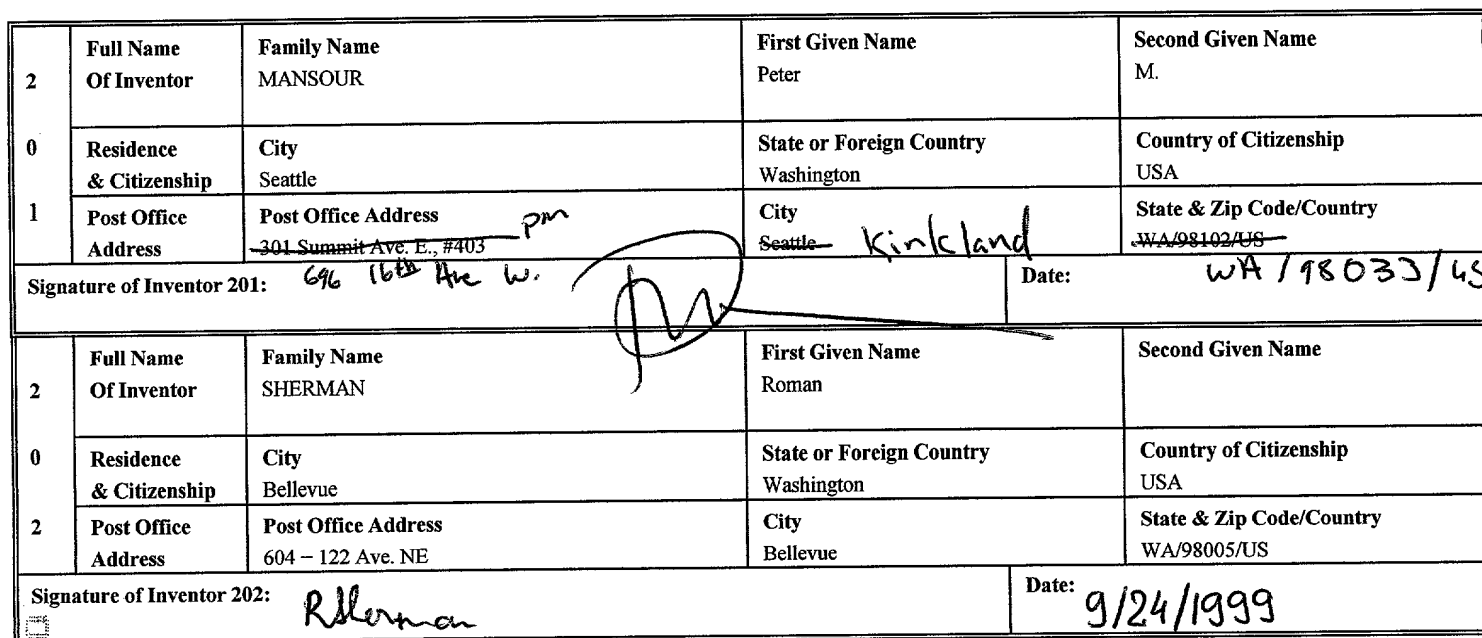 2 Full Name Of Inventor Family Name MANSOUR First Given Name Peter Second Given Name M.
0 Residence & Citizenship City Seattle State or Foreign Country Washington Country of Citizenship USA
1 Post Office Address Post Office Address 301 Summit Ave. E., #403 pm City Seattle Kinkland State & Zip Code/Country WA/98102/US
Signature of Inventor 201: 696 16th Ave W. Date: WA / 98033 / US
2 Full Name Of Inventor Family Name SHERMAN First Given Name Roman Second Given Name
0 Residence & Citizenship City Bellevue State or Foreign Country Washington Country of Citizenship USA
2 Post Office Address Post Office Address 604 – 122 Ave. NE City Bellevue State & Zip Code/Country WA/98005/US
Signature of Inventor 202: RSherman Date: 9/24/1999